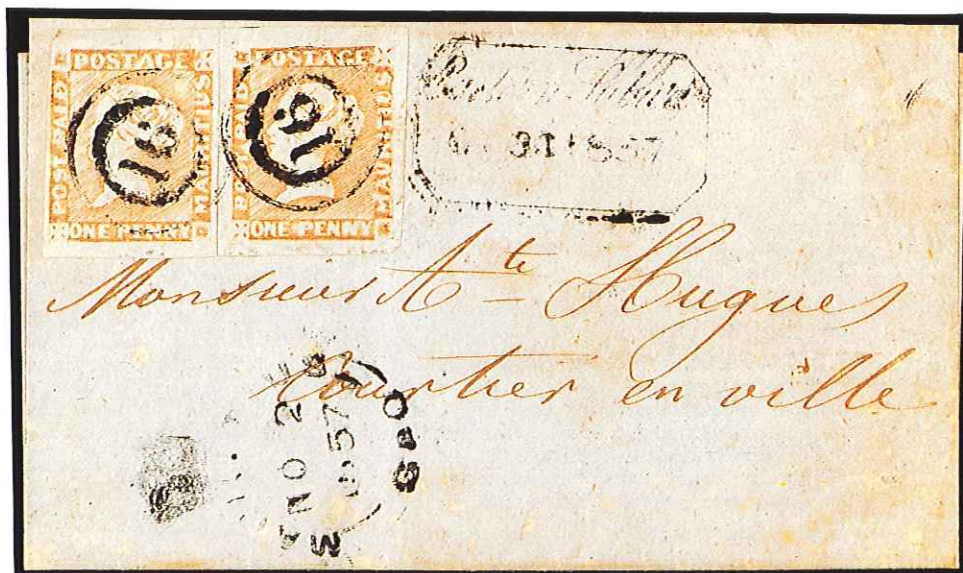 POSTAGE
POST PAID
MAURITIUS
ONE PENNY
16
POSTAGE
PAID
MAURITIUS
ONE PENNY
16
Monsieur Ate Hugues
Courtier en ville
NO 2
1857